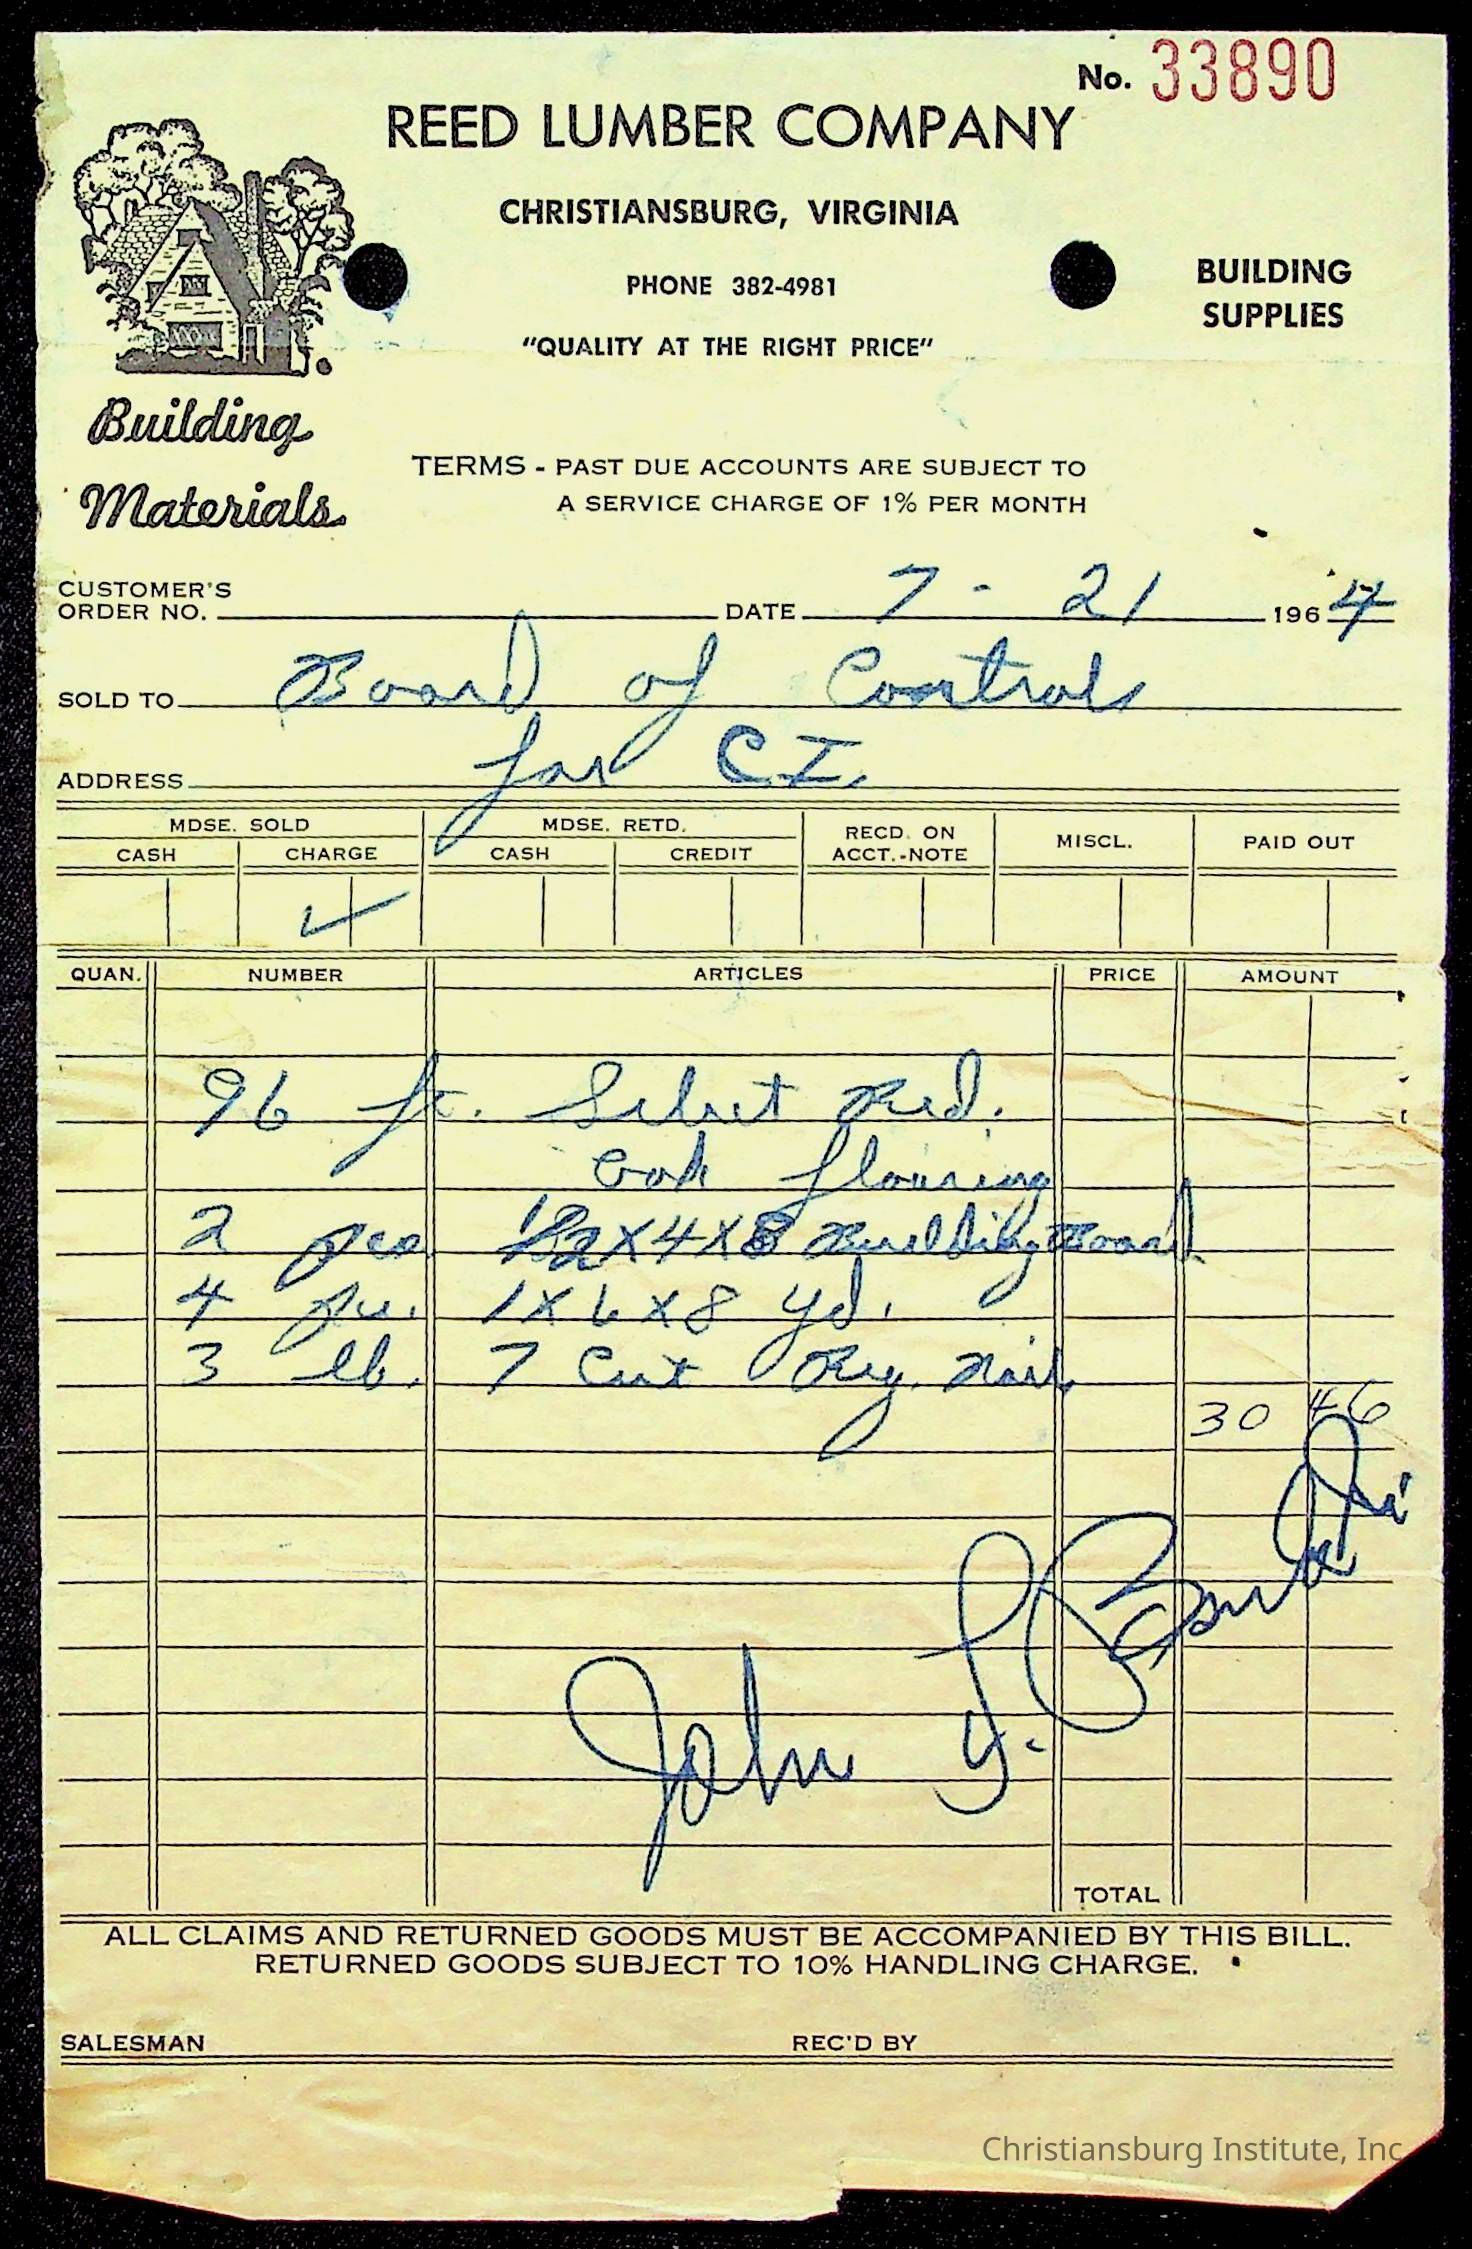 No. 33890
REED LUMBER COMPANY
CHRISTIANSBURG, VIRGINIA
PHONE 382-4981
"QUALITY AT THE RIGHT PRICE"
BUILDING
SUPPLIES
Building
Materials.
TERMS - PAST DUE ACCOUNTS ARE SUBJECT TO
A SERVICE CHARGE OF 1% PER MONTH
CUSTOMER'S
ORDER NO. DATE 7 - 21 1964
SOLD TO Board of Control
for C I.
ADDRESS
MDSE. SOLD MDSE. RETD. RECD. ON ACCT.-NOTE MISCL. PAID OUT
CASH CHARGE CASH CREDIT
✓
QUAN. NUMBER ARTICLES PRICE AMOUNT
96 ft. Select Red.
Oak flooring
2 pcs 1/2 X 4 X 8 Building Board
4 pc. 1 X 6 X 8 yd.
3 lb. 7 Cut Reg. Nail
30 46
John
TOTAL
ALL CLAIMS AND RETURNED GOODS MUST BE ACCOMPANIED BY THIS BILL.
RETURNED GOODS SUBJECT TO 10% HANDLING CHARGE.
SALESMAN REC'D BY
Christiansburg Institute, Inc